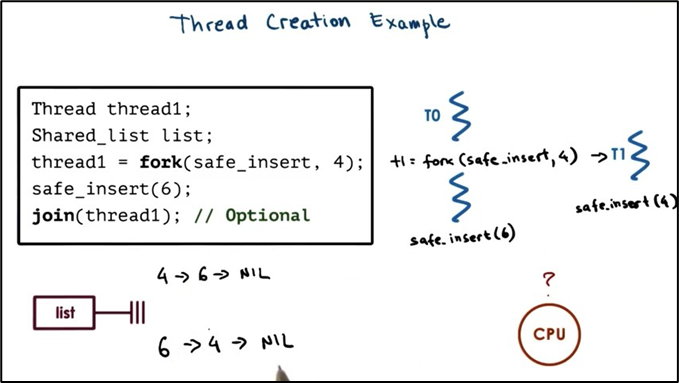 Thread Creation Example
Thread thread1;
Shared_list list;
thread1 = fork(safe_insert, 4);
safe_insert(6);
join(thread1); // Optional
T0
t1 = fork (safe_insert, 4) → T1
safe_insert(6)
safe_insert(4)
4 → 6 → NIL
list
6 → 4 → NIL
?
CPU